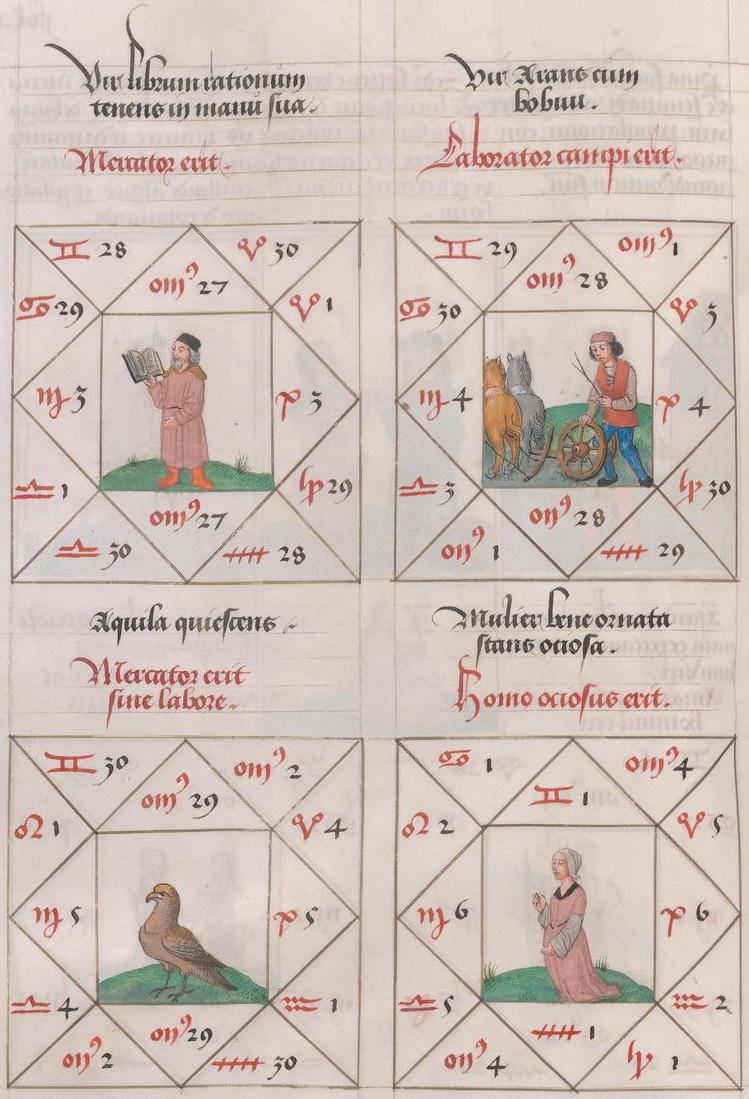 Vir librum rationum
tenens in manu sua.
Mercator erit.
♊ 28
♉ 30
♏ 27
♋ 29
♈ 1
♍ 3
♓ 3
♎ 1
♑ 29
♏ 27
♎ 30
♐ 28
Vir Arans cum
bobus.
Laborator campi erit.
♊ 29
♏ 1
♏ 28
♋ 30
♈ 3
♍ 4
♓ 4
♎ 3
♑ 30
♏ 28
♏ 1
♐ 29
Aquila quiescens
Mercator erit
sine labore.
♊ 30
♏ 2
♏ 29
♌ 1
♈ 4
♍ 5
♓ 5
♎ 4
♒ 1
♏ 29
♏ 2
♐ 30
Mulier bene ornata
stans ociosa.
Homo ociosus erit.
♋ 1
♏ 4
♊ 1
♌ 2
♈ 5
♍ 6
♓ 6
♎ 5
♒ 2
♐ 1
♏ 4
♑ 1